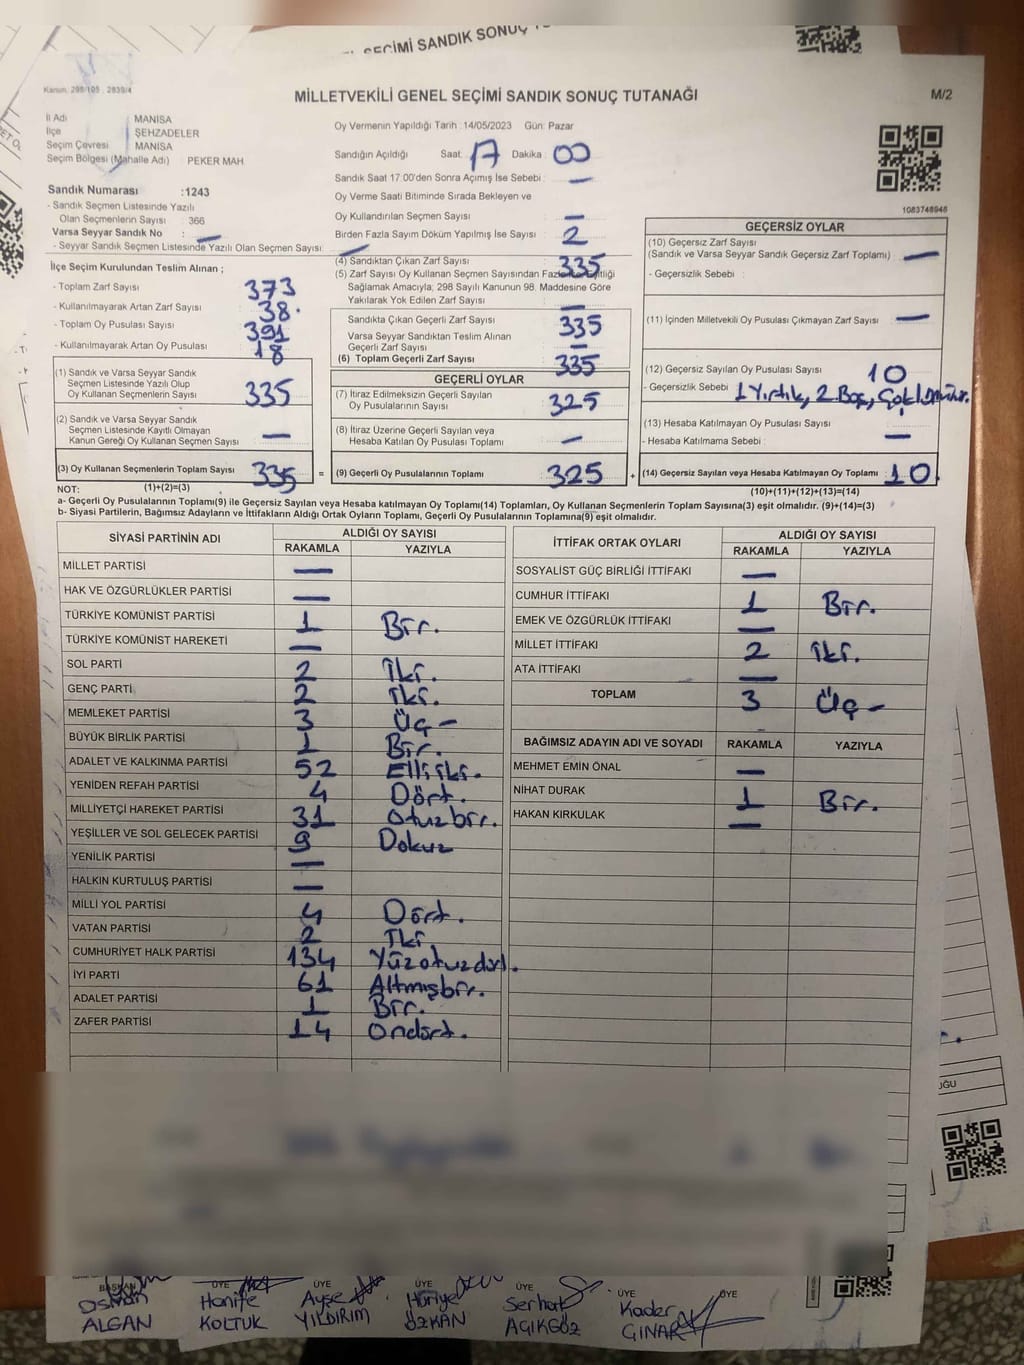 SEÇİMİ SANDIK SONUÇ
Kanun, 298/105 , 2839/4
MİLLETVEKİLİ GENEL SEÇİMİ SANDIK SONUÇ TUTANAĞI
M/2
İl Adı MANİSA
İlçe ŞEHZADELER
Seçim Çevresi MANİSA
Seçim Bölgesi (Mahalle Adı) PEKER MAH
Oy Vermenin Yapıldığı Tarih :14/05/2023 Gün: Pazar
Sandığın Açıldığı Saat: 17 Dakika : 00
Sandık Saat 17:00'den Sonra Açımış İse Sebebi : —
Oy Verme Saati Bitiminde Sırada Bekleyen ve
Oy Kullandırılan Seçmen Sayısı —
Birden Fazla Sayım Döküm Yapılmış İse Sayısı 2
1083748948
Sandık Numarası :1243
- Sandık Seçmen Listesinde Yazılı
Olan Seçmenlerin Sayısı : 366
Varsa Seyyar Sandık No : —
- Seyyar Sandık Seçmen Listesinde Yazılı Olan Seçmen Sayısı: —
İlçe Seçim Kurulundan Teslim Alınan ;
- Toplam Zarf Sayısı 373
- Kullanılmayarak Artan Zarf Sayısı 38.
- Toplam Oy Pusulası Sayısı 391
- Kullanılmayarak Artan Oy Pusulası 18
(1) Sandık ve Varsa Seyyar Sandık
Seçmen Listesinde Yazılı Olup
Oy Kullanan Seçmenlerin Sayısı 335
(2) Sandık ve Varsa Seyyar Sandık
Seçmen Listesinde Kayıtlı Olmayan
Kanun Gereği Oy Kullanan Seçmen Sayısı —
(3) Oy Kullanan Seçmenlerin Toplam Sayısı 335 =
(1)+(2)=(3)
(4) Sandıktan Çıkan Zarf Sayısı 335
(5) Zarf Sayısı Oy Kullanan Seçmen Sayısından Fazla İse, Eşitliği
Sağlamak Amacıyla; 298 Sayılı Kanunun 98. Maddesine Göre
Yakılarak Yok Edilen Zarf Sayısı —
Sandıkta Çıkan Geçerli Zarf Sayısı 335
Varsa Seyyar Sandıktan Teslim Alınan
Geçerli Zarf Sayısı —
(6) Toplam Geçerli Zarf Sayısı 335
GEÇERLİ OYLAR
(7) İtiraz Edilmeksizin Geçerli Sayılan
Oy Pusulalarının Sayısı 325
(8) İtiraz Üzerine Geçerli Sayılan veya
Hesaba Katılan Oy Pusulası Toplamı —
(9) Geçerli Oy Pusulalarının Toplamı 325 +
GEÇERSİZ OYLAR
(10) Geçersiz Zarf Sayısı
(Sandık ve Varsa Seyyar Sandık Geçersiz Zarf Toplamı) —
- Geçersizlik Sebebi :
(11) İçinden Milletvekili Oy Pusulası Çıkmayan Zarf Sayısı —
(12) Geçersiz Sayılan Oy Pusulası Sayısı 10
- Geçersizlik Sebebi 1 Yırtık, 2 Boş,
(13) Hesaba Katılmayan Oy Pusulası Sayısı
- Hesaba Katılmama Sebebi : —
(14) Geçersiz Sayılan veya Hesaba Katılmayan Oy Toplamı 10
(10)+(11)+(12)+(13)=(14)
NOT:
a- Geçerli Oy Pusulalarının Toplamı(9) ile Geçersiz Sayılan veya Hesaba katılmayan Oy Toplamı(14) Toplamları, Oy Kullanan Seçmenlerin Toplam Sayısına(3) eşit olmalıdır. (9)+(14)=(3)
b- Siyasi Partilerin, Bağımsız Adayların ve İttifakların Aldığı Ortak Oyların Toplamı, Geçerli Oy Pusulalarının Toplamına(9) eşit olmalıdır.
SİYASİ PARTİNİN ADI ALDIĞI OY SAYISI
RAKAMLA YAZIYLA
MİLLET PARTİSİ —
HAK VE ÖZGÜRLÜKLER PARTİSİ —
TÜRKİYE KOMÜNİST PARTİSİ 1 Bir.
TÜRKİYE KOMÜNİST HAREKETİ —
SOL PARTİ 2 İki.
GENÇ PARTİ 2 İki.
MEMLEKET PARTİSİ 3 Üç –
BÜYÜK BİRLİK PARTİSİ 1 Bir.
ADALET VE KALKINMA PARTİSİ 52 Elliiki.
YENİDEN REFAH PARTİSİ 4 Dört.
MİLLİYETÇİ HAREKET PARTİSİ 31 Otuzbir.
YEŞİLLER VE SOL GELECEK PARTİSİ 9 Dokuz
YENİLİK PARTİSİ —
HALKIN KURTULUŞ PARTİSİ —
MİLLİ YOL PARTİSİ 4 Dört.
VATAN PARTİSİ 2 İki
CUMHURİYET HALK PARTİSİ 134 Yüzotuzdört.
İYİ PARTİ 61 Altmışbir.
ADALET PARTİSİ 1 Bir.
ZAFER PARTİSİ 14 Ondört.
İTTİFAK ORTAK OYLARI ALDIĞI OY SAYISI
RAKAMLA YAZIYLA
SOSYALİST GÜÇ BİRLİĞİ İTTİFAKI —
CUMHUR İTTİFAKI 1 Bir.
EMEK VE ÖZGÜRLÜK İTTİFAKI —
MİLLET İTTİFAKI 2 iki.
ATA İTTİFAKI —
TOPLAM 3 Üç –
BAĞIMSIZ ADAYIN ADI VE SOYADI RAKAMLA YAZIYLA
MEHMET EMİN ÖNAL —
NİHAT DURAK 1 Bir.
HAKAN KIRKULAK —
BAŞKAN ÜYE ÜYE ÜYE ÜYE ÜYE ÜYE
Osman Hanife Ayşe Huriye Serhat Kader
ALGAN KOLTUK YILDIRIM ÖZKAN AÇIKGÖZ ÇINAR